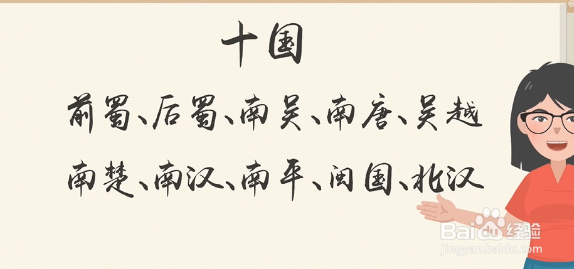 十国
前蜀、后蜀、南吴、南唐、吴越
南楚、南汉、南平、闽国、北汉
Baidu经验
jingyan.baidu.com